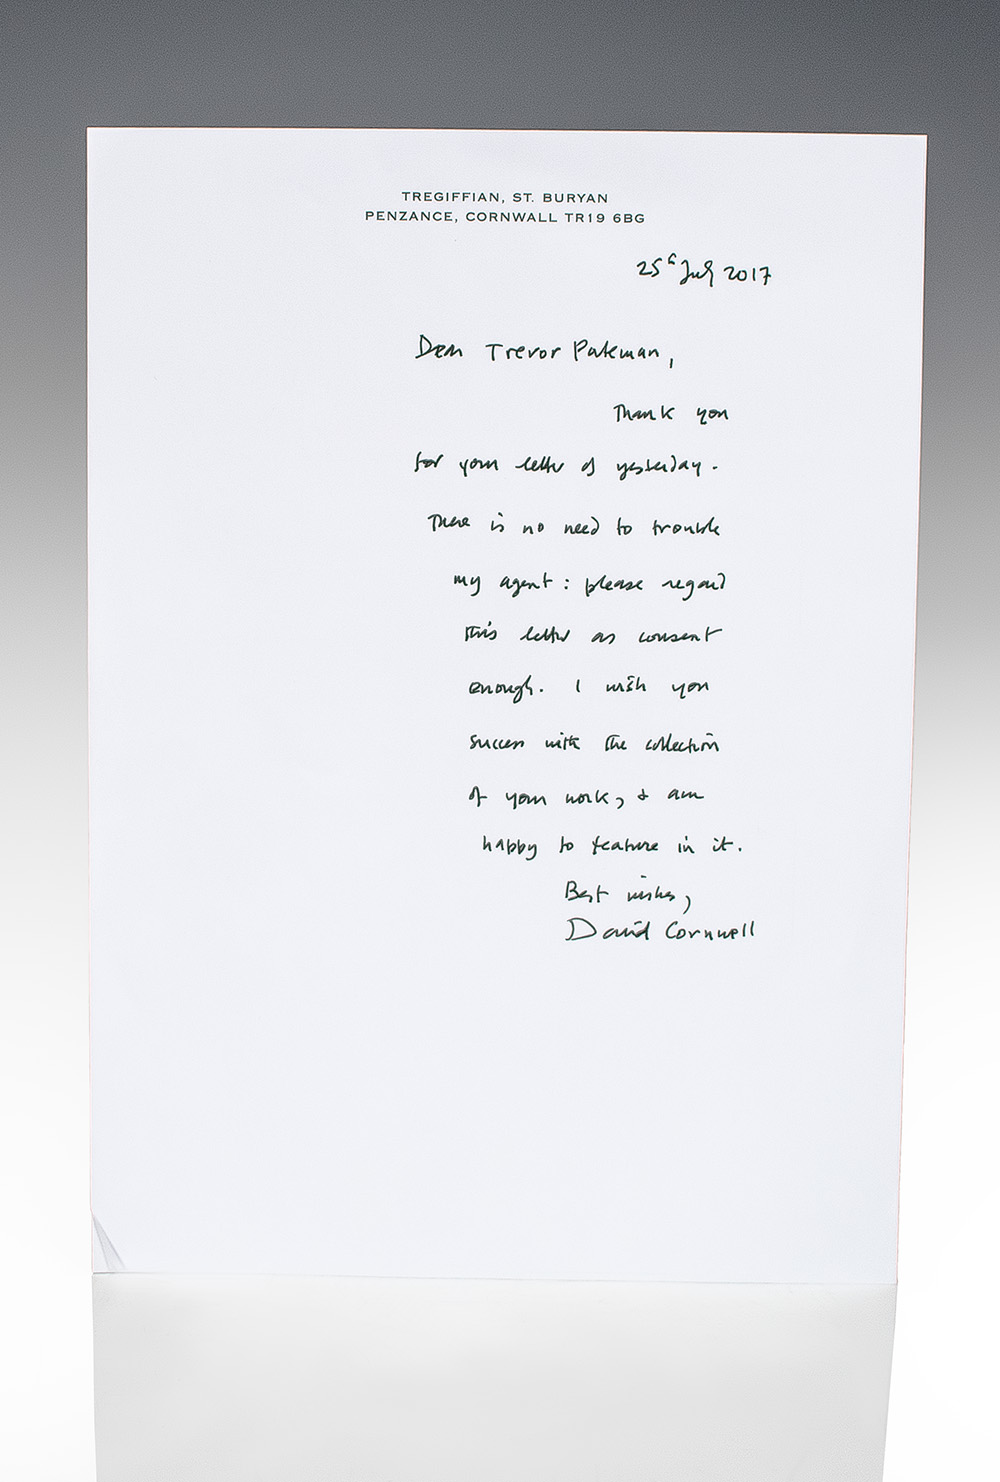 TREGIFFIAN, ST. BURYAN
PENZANCE, CORNWALL TR19 6BG
25th July 2017
Dear Trevor Pateman,
Thank you
for your letter of yesterday.
There is no need to trouble
my agent: please regard
this letter as consent
enough. I wish you
success with the collection
of your work, & am
happy to feature in it.
Best wishes,
David Cornwell